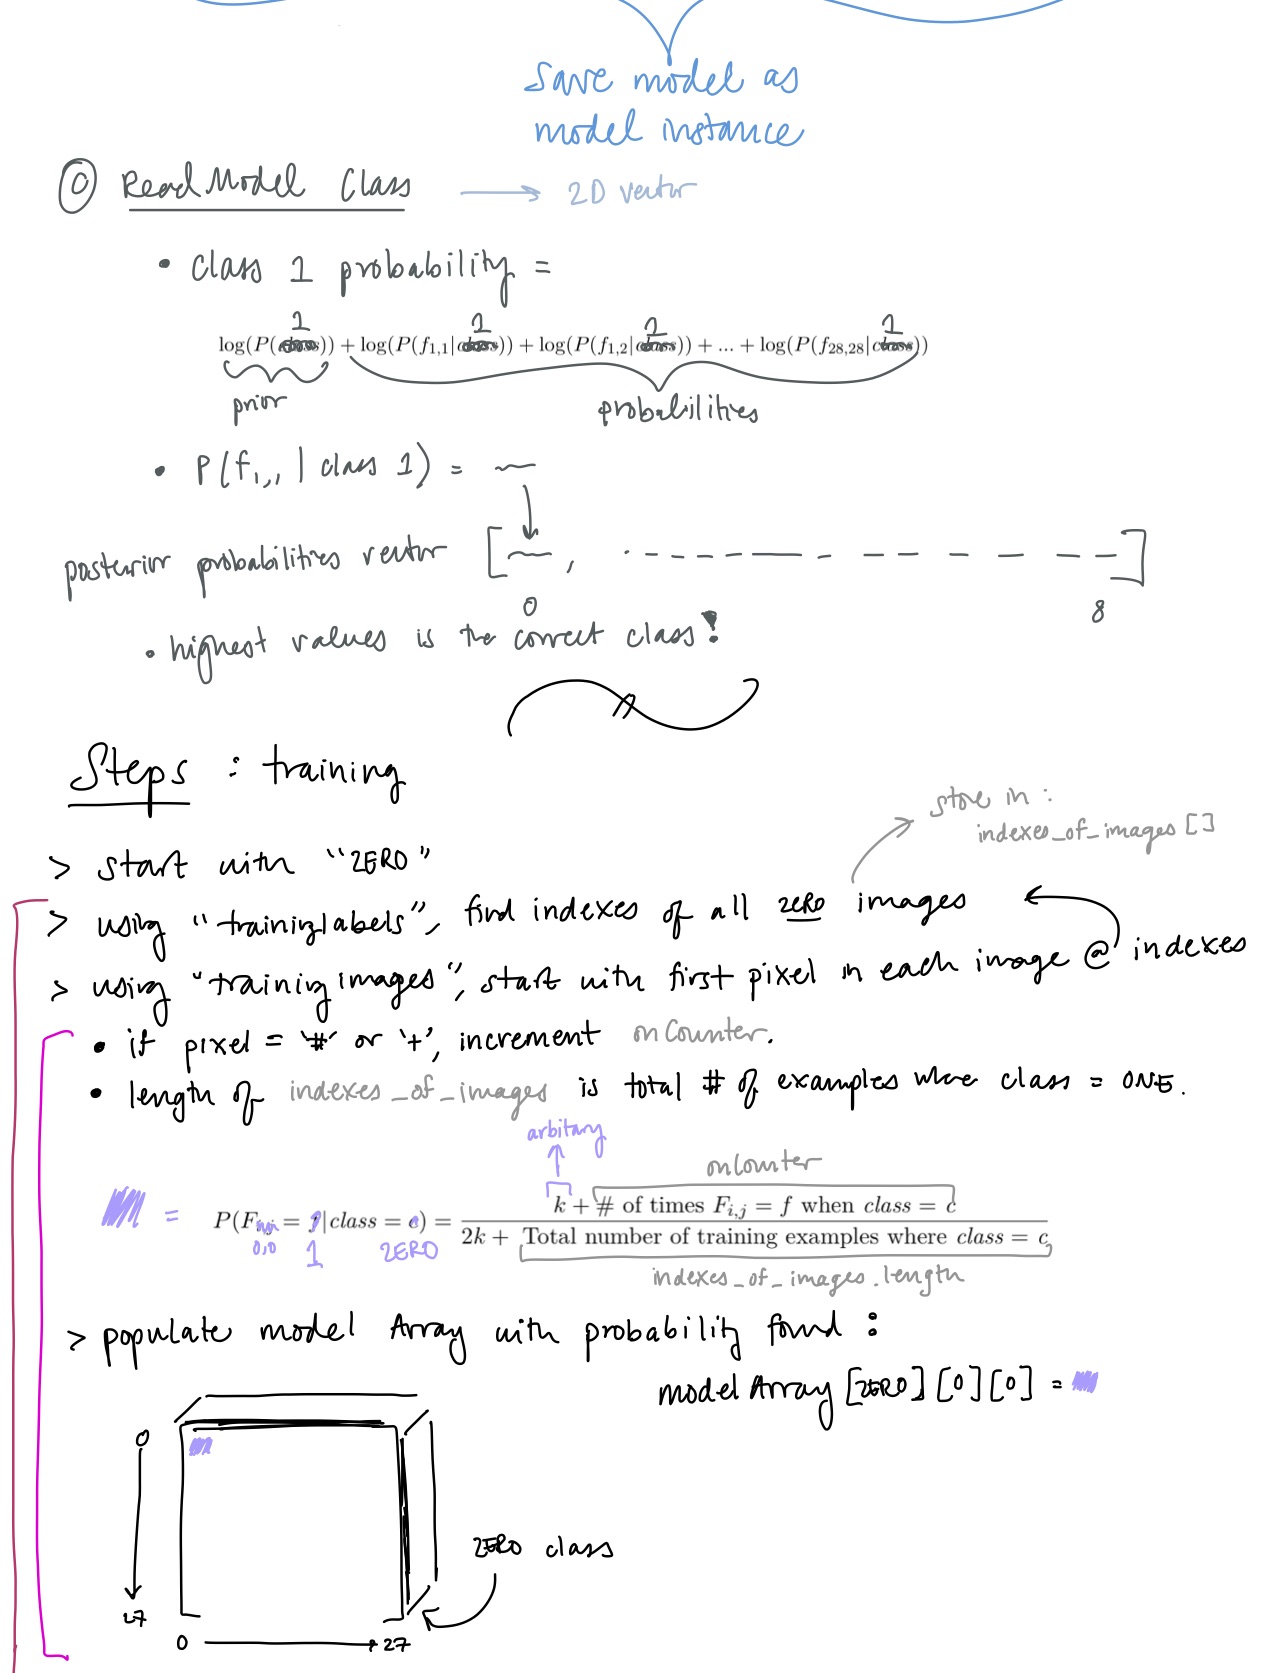 save model as
model instance
0 Read Model Class → 2D vector
• class 1 probability =
1 1 1 1
log(P(class)) + log(P(f1,1|class)) + log(P(f1,2|class)) + ... + log(P(f28,28|class))
prior probabilities
• P(f1,1 | class 1) = —
posterior probabilities vector [ — , · - - - - — - - - - - - ]
0 8
• highest values is the correct class!
Steps : training
store in :
indexes_of_images []
> start with "ZERO"
> using "traininglabels", find indexes of all ZERO images
> using "trainingimages", start with first pixel in each image @ indexes
• if pixel = '#' or '+', increment onCounter.
• length of indexes_of_images is total # of examples where class = ONE.
arbitary
onCounter
= P(Fi,j = f|class = c) = k + # of times Fi,j = f when class = c
2k + Total number of training examples where class = c
0,0 1 ZERO
indexes_of_images.length
> populate model Array with probability found :
model Array [ZERO] [0] [0] =
0
ZERO class
27
0 → 27